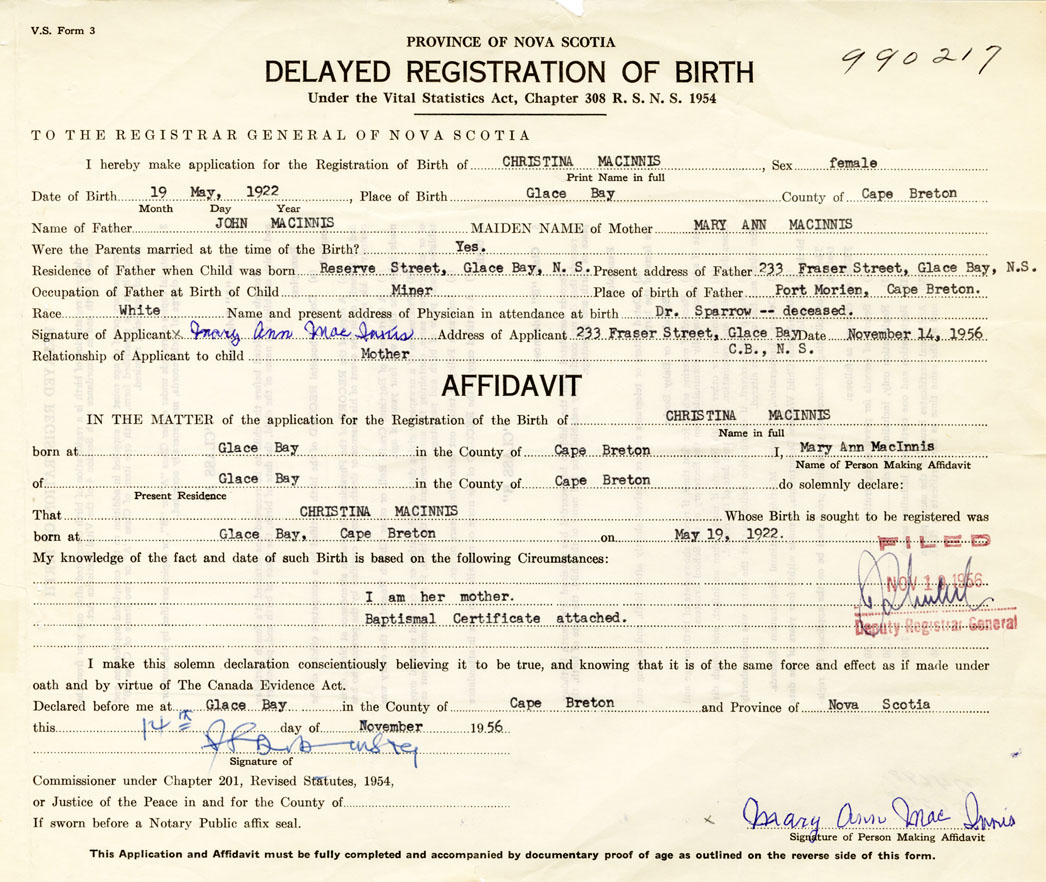 V.S. Form 3
PROVINCE OF NOVA SCOTIA
990217
DELAYED REGISTRATION OF BIRTH
Under the Vital Statistics Act, Chapter 308 R. S. N. S. 1954
TO THE REGISTRAR GENERAL OF NOVA SCOTIA
I hereby make application for the Registration of Birth of CHRISTINA MACINNIS, Sex female
Print Name in full
Date of Birth 19 May, 1922, Place of Birth Glace Bay County of Cape Breton
Month Day Year
Name of Father JOHN MACINNIS MAIDEN NAME of Mother MARY ANN MACINNIS
Were the Parents married at the time of the Birth? Yes.
Residence of Father when Child was born Reserve Street, Glace Bay, N. S. Present address of Father 233 Fraser Street, Glace Bay, N.S.
Occupation of Father at Birth of Child Miner Place of birth of Father Port Morien, Cape Breton.
Race White Name and present address of Physician in attendance at birth Dr. Sparrow -- deceased.
Signature of Applicant x Mary Ann Mac Innis Address of Applicant 233 Fraser Street, Glace Bay Date November 14, 1956
C.B., N. S.
Relationship of Applicant to child Mother
AFFIDAVIT
IN THE MATTER of the application for the Registration of the Birth of CHRISTINA MACINNIS
Name in full
born at Glace Bay in the County of Cape Breton I, Mary Ann MacInnis
Name of Person Making Affidavit
of Glace Bay in the County of Cape Breton do solemnly declare:
Present Residence
That CHRISTINA MACINNIS Whose Birth is sought to be registered was
born at Glace Bay, Cape Breton on May 19, 1922.
My knowledge of the fact and date of such Birth is based on the following Circumstances:
FILED
NOV 19 1956
I am her mother.
Baptismal Certificate attached.
Deputy Registrar General
I make this solemn declaration conscientiously believing it to be true, and knowing that it is of the same force and effect as if made under
oath and by virtue of The Canada Evidence Act.
Declared before me at Glace Bay in the County of Cape Breton and Province of Nova Scotia
this 14th day of November 1956
Signature of
Commissioner under Chapter 201, Revised Statutes, 1954,
or Justice of the Peace in and for the County of
If sworn before a Notary Public affix seal.
x Mary Ann Mac Innis
Signature of Person Making Affidavit
This Application and Affidavit must be fully completed and accompanied by documentary proof of age as outlined on the reverse side of this form.